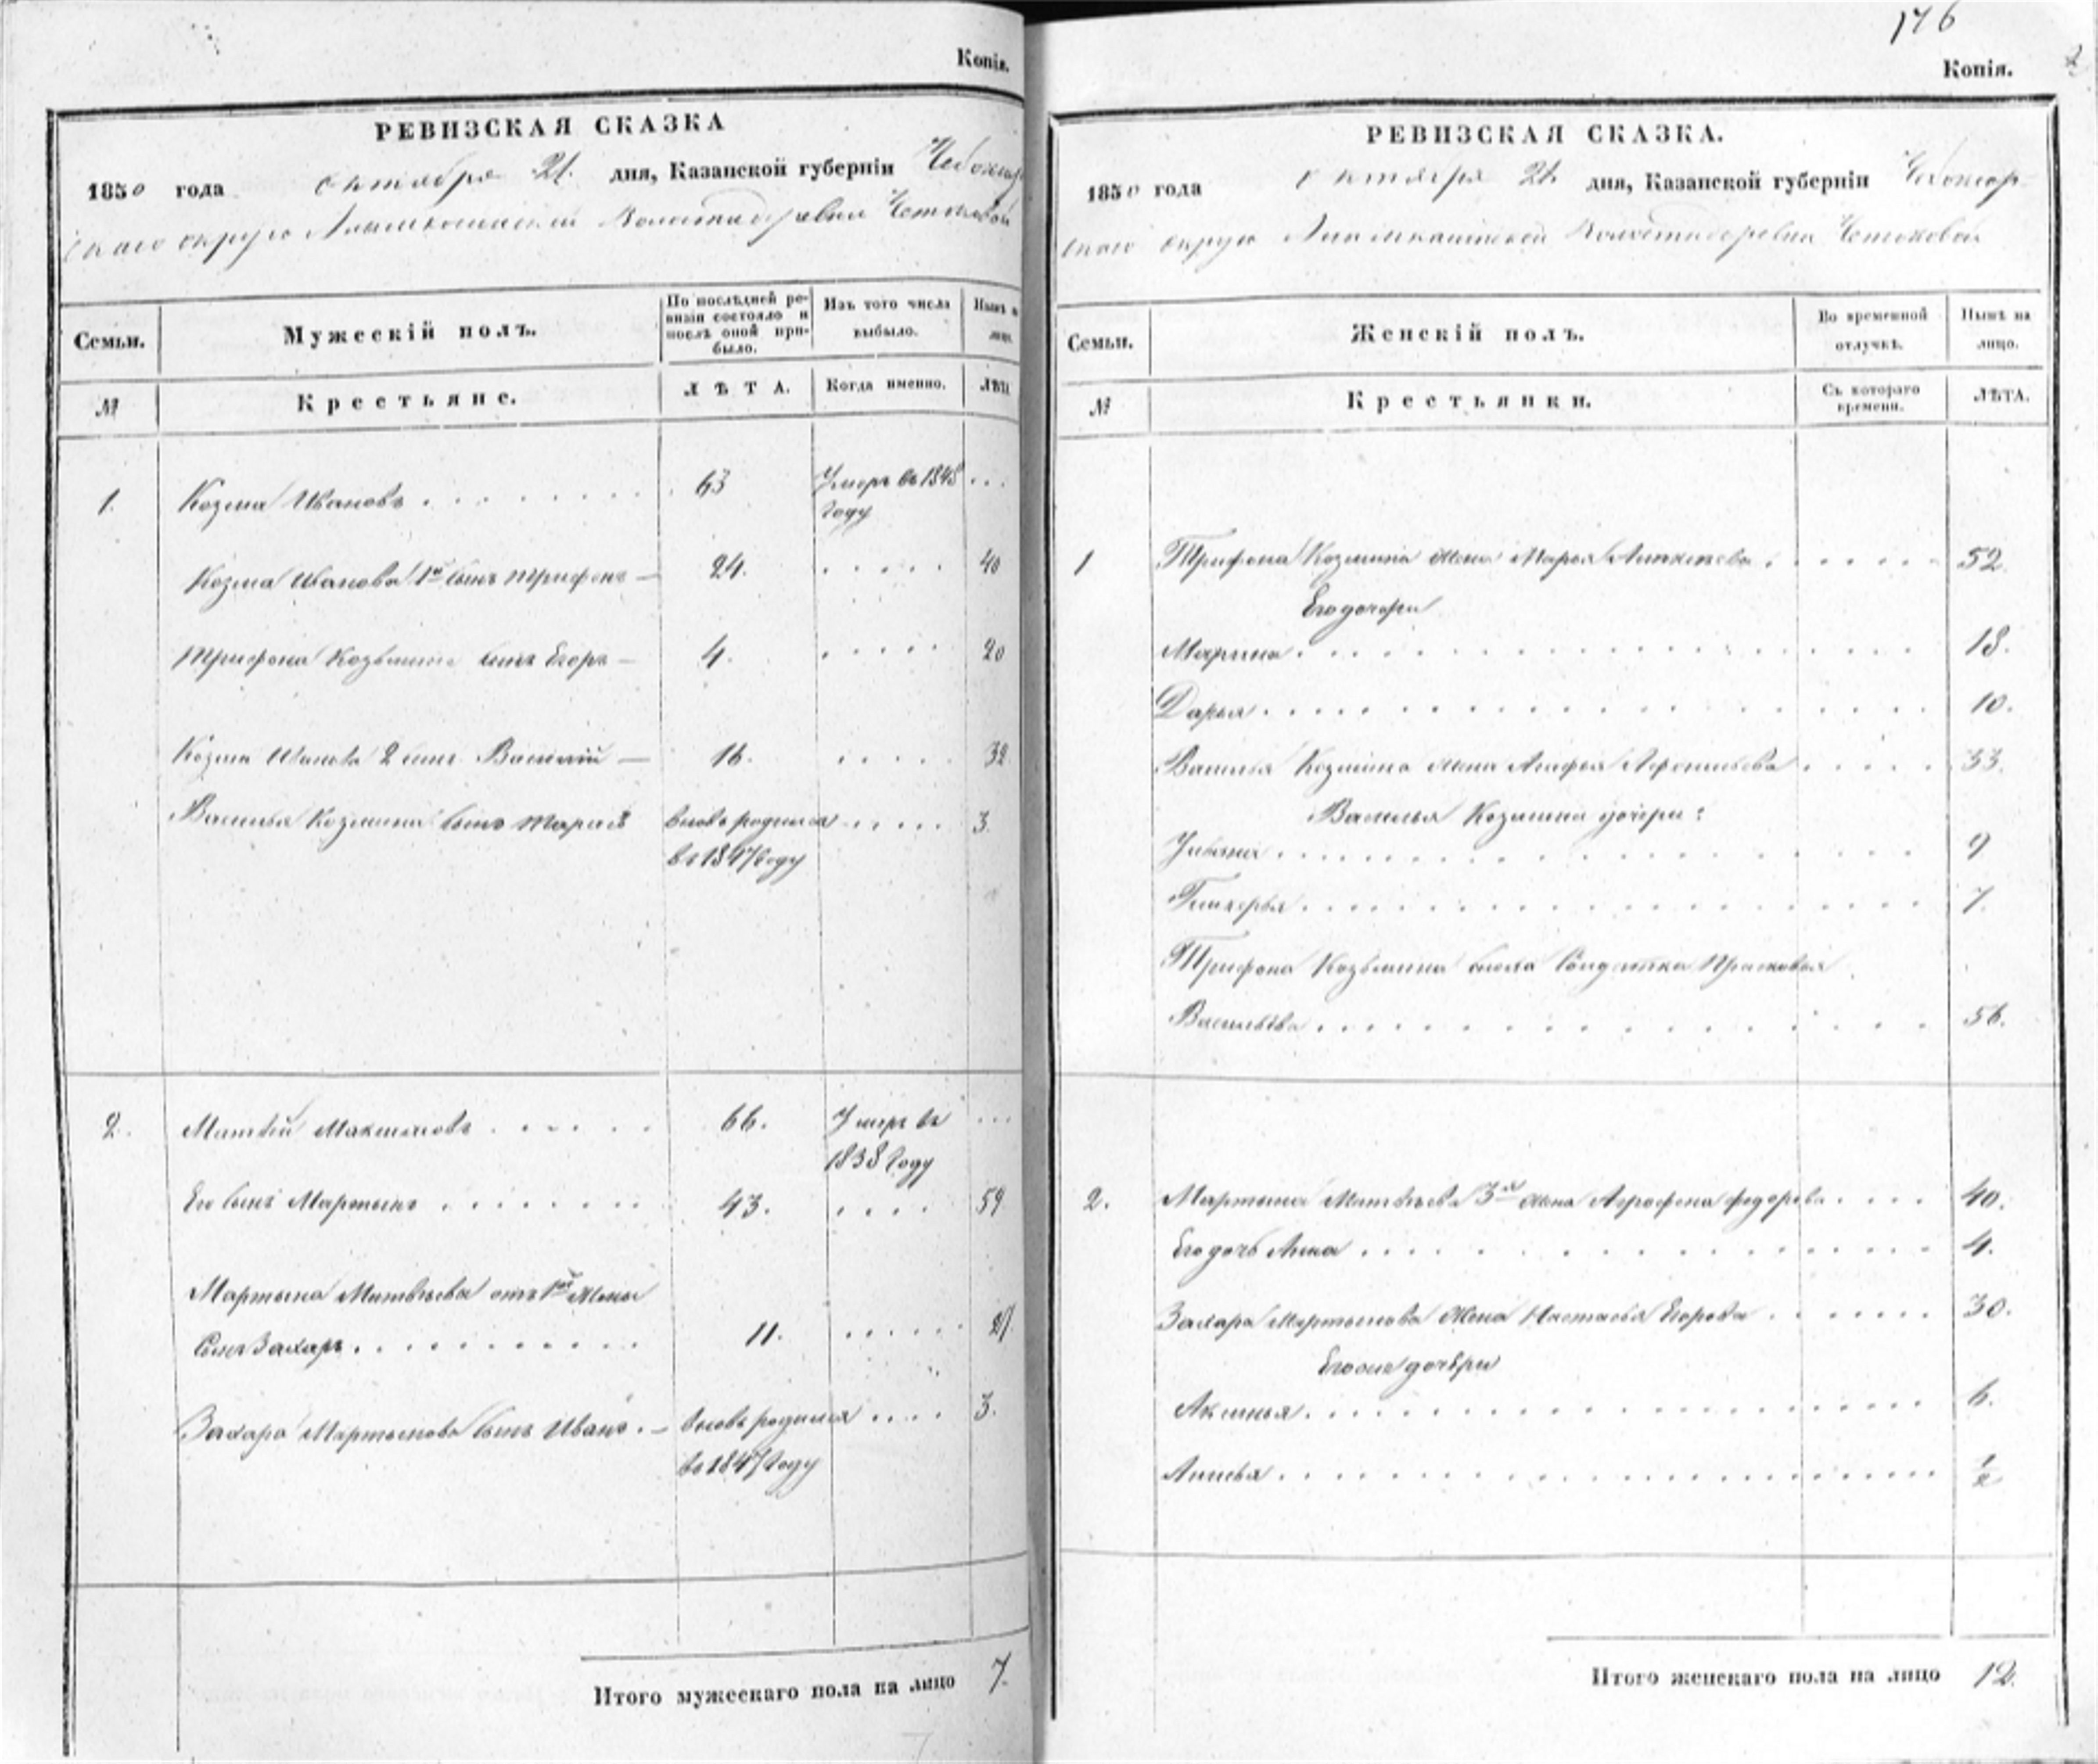 Копія.
РЕВИЗСКАЯ СКАЗКА
1850 года октября 21. дня, Казанской губерніи Чебоксар
скаго округа волости деревни
Семьи.
Мужескій полъ.
По послѣдней ре-
визіи состояло и
послѣ оной при-
было.
Изъ того числа
выбыло.
Нынѣ на
лицо.
№
Крестьяне.
ЛѢТА.
Когда именно.
ЛѢТА
1. Козма Ивановъ 63 Умеръ въ 1848
году
Козма Иванова 1й сынъ Трифонъ — 24. 40
Трифона Козьмина сынъ Егоръ — 4. 20
Козмы Иванова 2 сынъ Василий — 16. 32
Василья Козмина сынъ вновь родился 3.
въ 1847 году
2. Матвей Максимовъ 66. Умеръ въ
1838 году
Его сынъ Мартынъ 43. 59
Мартына Матвѣева отъ 1ой жены
Сынъ Захаръ 11. 27
Захара Мартынова сынъ Иванъ. — вновь родился 3.
въ 1847 году
Итого мужескаго пола на лицо 7.
176
Копія.
РЕВИЗСКАЯ СКАЗКА.
1850 года октября 21. дня, Казанской губерніи Чебоксар-
скаго округа волости деревни
Семьи.
Женскій полъ.
Во временной
отлучкѣ.
Нынѣ на
лицо.
№
Крестьянки.
Съ котораго
времени.
ЛѢТА.
1 Трифона Козмина жена Марья 52.
Его дочери
Марина 18.
Дарья 10.
Василья Козмина жена Агафья 33.
Василья Козмина дочери:
Ульяна 9
Гликерья 7.
Трифона Козьмина Солдатка Прасковья
Васильева 56.
2. Мартына Матвѣева 3я жена Аграфена Федорова 40.
Его дочь Анна 4.
Захара Мартынова жена Настасья Егорова 30.
дочери
Аксинья 6.
Анисья ½
Итого женскаго пола на лицо 12.